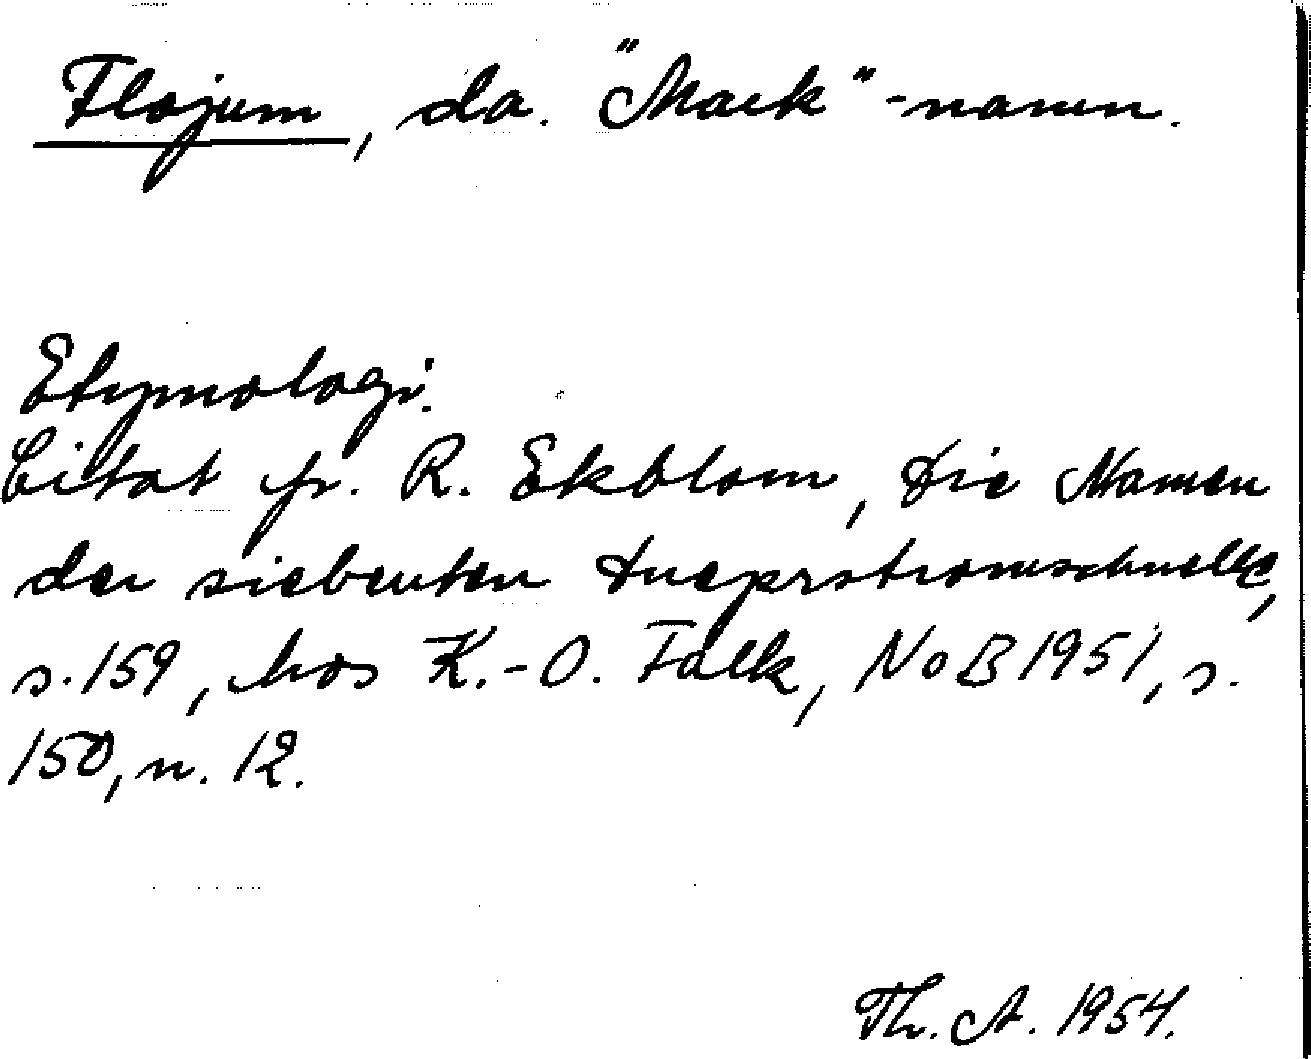 Fløjum, da. "Mark"-namn.
Etymologi.
Citat fr. R. Ekblom, Die Namen
der siebenten Dneprstromschnelle,
s. 159, hos K.-O. Falk, NoB 1951, s.
150, n. 12.
Th. A. 1954.